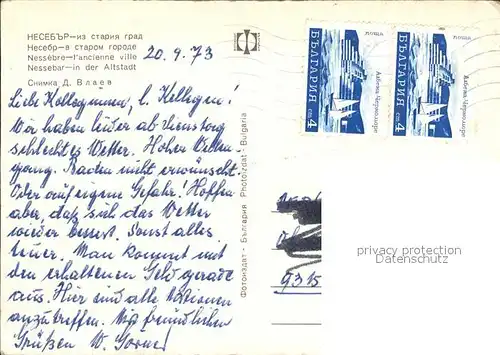 НЕСЕБЪР—из стария град
Несебр—в старом городе
Nessèbre—l'ancienne ville
Nessebar—in der Altstadt
Снимка Д. Влаев
20.9.73
Liebe Kolleginnen, l. Kollegen!
Wir haben leider ab Dienstag
schlechtes Wetter. Hohen Wellen-
gang. Baden nicht erwünscht
Oder auf eigene Gefahr! Hoffen
aber, daß sich das Wetter
wieder bessert. Sonst alles
teuer. Man kommt mit
den erhaltenen Geld gerade
aus. Hier sind alle Nationen
anzutreffen. Mit freundlichen
Grüßen W.
Фотоиздат - България Photoizdat - Bulgaria
БЪЛГАРИЯ
ст 4
поща
Албена Черноморие
БЪЛГАРИЯ
ст 4
поща
Албена Черноморие
9315
privacy protection
Datenschutz